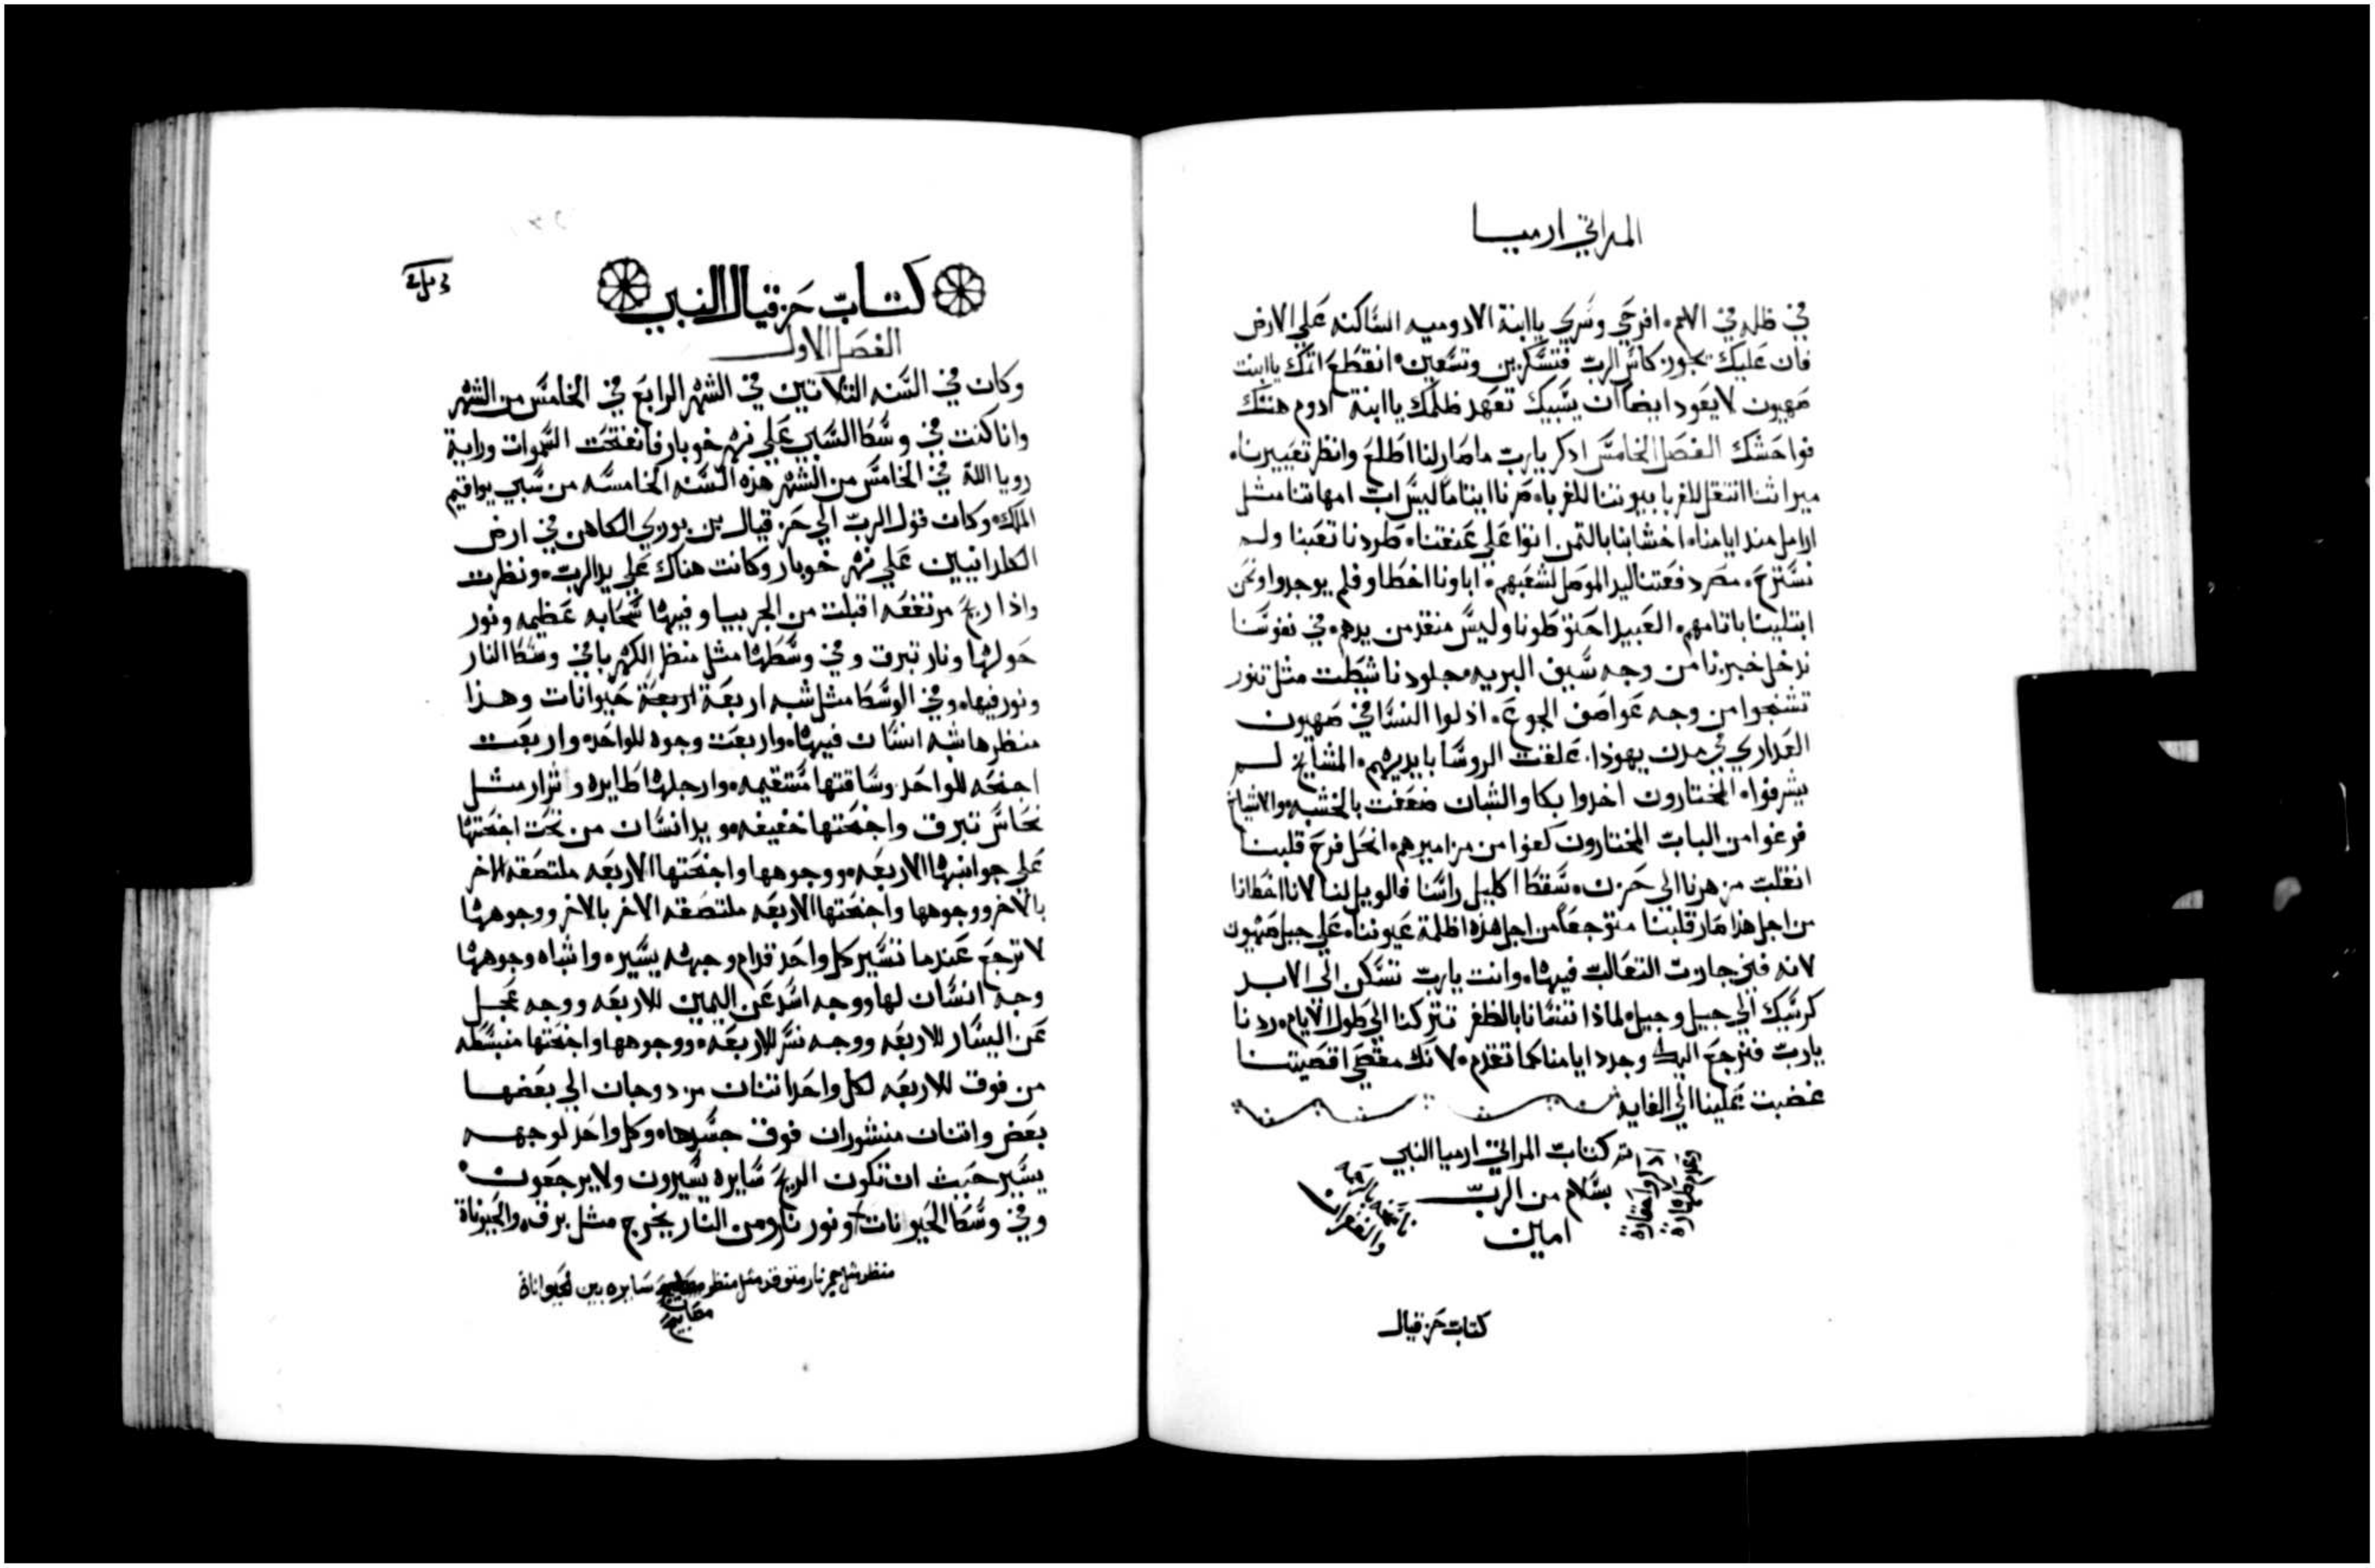 المراتي ارميا
في ظله في الامم. افرحي وسري ياابنة الادوميه الساكنه علي الارض
فان عليك يجوز كاس الرب فتسكرين وتسعين انقطع اتمك ياابنت
صهيون لا يعود ايضا ان يسبيك تعهد ظلمك ياابنة ادوم هتك
فواحشك الفصل الخامس ادكر يارب ماصار لنا اطلع وانظر تعييرنا
ميراتنا انتقل للغربا بيوتنا للغربا صرنا ايتاما ليس اب امهاتنا مثل
ارامل مند ايامنا اخشابنا بالتمن اتوا علي عنقنا طردنا تعبنا ولم
نسترح مصر دفعتنا ليد الموصل لشعبهم اباونا اخطاو فلم يوجدوا ونحن
ابتلينا باتامهم العبيد احتوطونا وليس منقد من يدهم في نفوسنا
ندخل خبزنا من وجه سيف البريه جلودنا شيطت مثل تنور
تشنجوا من وجه عواصف الجوع ادلوا النسا في صهيون
العداري في مدن يهودا علقت الروسا بايديهم المشايخ لم
يشرفوا المختارون اخدوا بكا والشبان ضعفت بالخشبه والاشياخ
فرغوا من الباب المختارون كفوا من مزاميرهم انحل فرح قلبنا
انقلب زمرنا الي حزن سقط اكليل راسنا فالويل لنا لانا اخطانا
من اجل هدا صار قلبنا متوجعا من اجل هده اظلمة عيوننا علي جبل صهيون
لانه فني جازت التعالب فيها وانت يارب تسكن الي الابد
كرسيك الي جيل وجيل لمادا تنسانا بالظفر تتركنا الي طول الايام ردنا
يارب فنرجع اليك وجدد ايامنا كما تقدم لانك مقصي اقصيتنا
غضبت علينا الي الغايه
تم كتاب المراتي ارميا النبي
بسلام من الرب
امين
كتاب حزقيال
كتاب حزقيال النبي
الفصل الاول
وكان في السنه التلاتين في الشهر الرابع في الخامس من الشهر
وانا كنت في وسط السبي علي نهر خوبار فانفتحت السموات وراية
رويا الله في الخامس من الشهر هذه السنه الخامسه من سبي يواقيم
الملك وكان قول الرب الي حزقيال بن بوزي الكاهن في ارض
الكلدانيين علي نهر خوبار وكانت هناك علي يد الرب ونظرت
واذا ريح مرتفعه اقبلت من الجربيا وفيها سحابه عظيمه ونور
حولها ونار تبرق وفي وسطها مثل منظر الكهربا في وسط النار
ونور فيها وفي الوسط مثل شبه اربعة اربعة حيوانات وهذا
منظرها شبه انسان فيها واربعت وجوه للواحد واربعت
اجنحه للواحد وساقتها مستقيمه وارجلها طايره وشرار مثل
نحاس تبرق واجنحتها خفيفه ويد انسان من تحت اجنحتها
علي جوانبها الاربعه ووجوهها واجنحتها الاربعه ملتصقه الاخر
بالاخر ووجوهها واجنحتها الاربعه ملتصقه الاخر بالاخر ووجوهها
لا ترجع عندما تسير كل واحد قدام وجهه يسير واشباه وجوهها
وجه انسان لها ووجه اسد عن اليمين للاربعه ووجه عجل
عن اليسار للاربعه ووجه نسر للاربعه ووجوهها واجنحتها منبسطه
من فوق للاربعه لكل واحد اتنتان مزدوجان الي بعضها
بعض واتنتان منشوران فوق جسدها وكل واحد لوجهه
يسير حيث ان تكون الريح سايره يسيرون ولا يرجعون
وفي وسط الحيوانات ونور نار ومن النار يخرج مثل برق والحيوناة
منظر مثل جمر نار متوقد مثل منظر مصابيح سايره بين الحيواناة